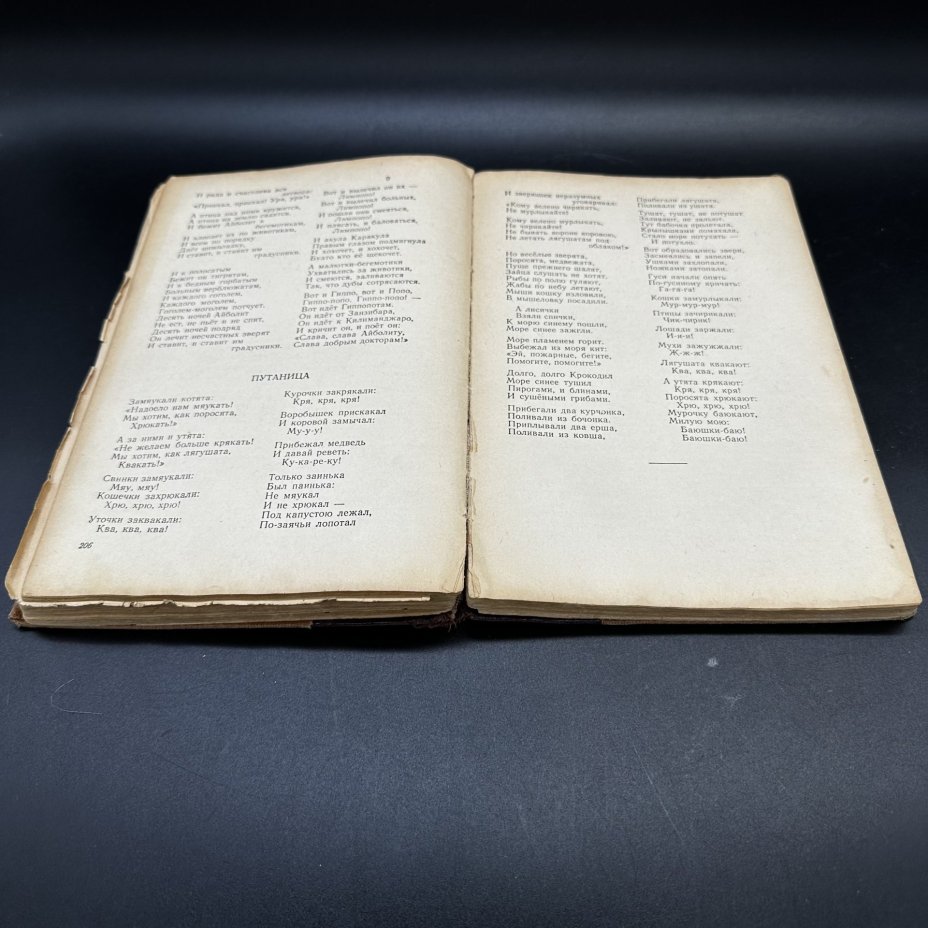 9
И рада и счастлива вся
детвора:
«Приехал, приехал! Ура, ура!»
А птица над ними кружится,
А птица на землю садится.
И бежит Айболит к
бегемотикам,
И хлопает их по животикам,
И всем по порядку
Даёт шоколадку,
И ставит, и ставит им
градусники.
И к полосатым
Бежит он тигрятам,
И к бедным горбатым
Больным верблюжатам,
И каждого гоголем,
Каждого моголем,
Гоголем-моголем потчует.
Десять ночей Айболит
Не ест, не пьёт и не спит,
Десять ночей подряд
Он лечит несчастных зверят
И ставит, и ставит им
градусники.
Вот и вылечил он их —
Лимпопо!
Вот и вылечил больных,
Лимпопо!
И пошли они смеяться,
Лимпопо!
И плясать, и баловаться,
Лимпопо!
И акула Каракула
Правым глазом подмигнула
И хохочет, и хохочет,
Будто кто её щекочет.
А малютки-бегемотики
Ухватились за животики,
И смеются, заливаются
Так, что дубы сотрясаются.
Вот и Гиппо, вот и Попо,
Гиппо-попо, Гиппо-попо! —
Вот идёт Гиппопотам.
Он идёт от Занзибара,
Он идёт к Килиманджаро,
И кричит он, и поёт он:
«Слава, слава Айболиту,
Слава добрым докторам!»
ПУТАНИЦА
Замяукали котята:
«Надоело нам мяукать!
Мы хотим, как поросята,
Хрюкать!»
А за ними и утята:
«Не желаем больше крякать!
Мы хотим, как лягушата,
Квакать!»
Свинки замяукали:
Мяу, мяу!
Кошечки захрюкали:
Хрю, хрю, хрю!
Уточки заквакали:
Ква, ква, ква!
Курочки закрякали:
Кря, кря, кря!
Воробышек прискакал
И коровой замычал:
Му-у-у!
Прибежал медведь
И давай реветь:
Ку-ка-ре-ку!
Только заинька
Был паинька:
Не мяукал
И не хрюкал —
Под капустою лежал,
По-заячьи лопотал
206
И зверюшек неразумных
уговаривал:
«Кому велено чирикать,
Не мурлыкайте!
Кому велено мурлыкать,
Не чирикайте!
Не бывать вороне коровою,
Не летать лягушатам под
облаком!»
Но весёлые зверята,
Поросята, медвежата,
Пуще прежнего шалят,
Зайца слушать не хотят.
Рыбы по полю гуляют,
Жабы по небу летают,
Мыши кошку изловили,
В мышеловку посадили.
А лисички
Взяли спички,
К морю синему пошли,
Море синее зажгли.
Море пламенем горит.
Выбежал из моря кит:
«Эй, пожарные, бегите,
Помогите, помогите!»
Долго, долго Крокодил
Море синее тушил
Пирогами, и блинами,
И сушёными грибами.
Прибегали два курчонка,
Поливали из бочонка.
Приплывали два ерша,
Поливали из ковша,
Прибегали лягушата,
Поливали из ушата.
Тушат, тушат, не потушат,
Заливают, не зальют.
Тут бабочка прилетала,
Крылышками помахала,
Стало море потухать —
И потухло.
Вот обрадовались звери,
Засмеялись и запели,
Ушками захлопали,
Ножками затопали.
Гуси начали опять
По-гусиному кричать:
Га-га-га!
Кошки замурлыкали:
Мур-мур-мур!
Птицы зачирикали:
Чик-чирик!
Лошади заржали:
И-и-и!
Мухи зажужжали:
Ж-ж-ж!
Лягушата квакают:
Ква, ква, ква!
А утята крякают:
Кря, кря, кря!
Поросята хрюкают:
Хрю, хрю, хрю!
Мурочку баюкают,
Милую мою:
Баюшки-баю!
Баюшки-баю!